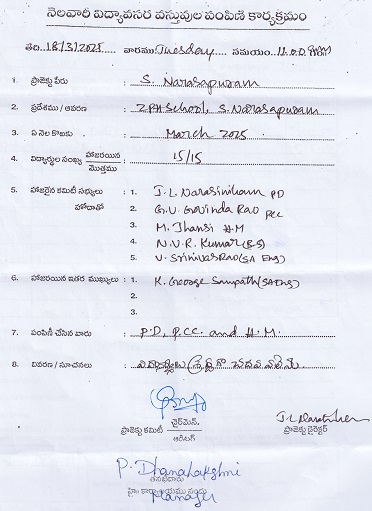 నెలవారీ విద్యావసర వస్తువుల పంపిణి కార్యక్రమం
తేది. 18/3/2025 వారము Tuesday సమయం. 11.00 am
1. ప్రాజెక్టు పేరు : S. Narasapuram
2. ప్రదేశము / ఆవరణ : ZPH School, S. Narasapuram
3. ఏ నెల కొఱకు : March 2025
4. విద్యార్థుల సంఖ్య హాజరయిన / మొత్తము : 15/15
5. హాజరైన కమిటీ సభ్యులు : 1. J. L. Narasimham PD
హోదాతో 2. G. V. Govinda Rao PCC
3. M. Jhansi H.M
4. N.V.R. Kumar (B.S)
5. V. Srinivas Rao (SA Eng)
6. హాజరయిన ఇతర ముఖ్యులు : 1. K. George Sampath (SA Eng)
2.
3.
7. పంపిణీ చేసిన వారు : P.D, P.CC. and H.M.
8. వివరణ / సూచనలు :
ప్రాజెక్టు కమిటీ ఛైర్మెన్, / ఆడిటర్
ప్రాజెక్టు డైరెక్టర్
P. Dhanalakshmi
Manager